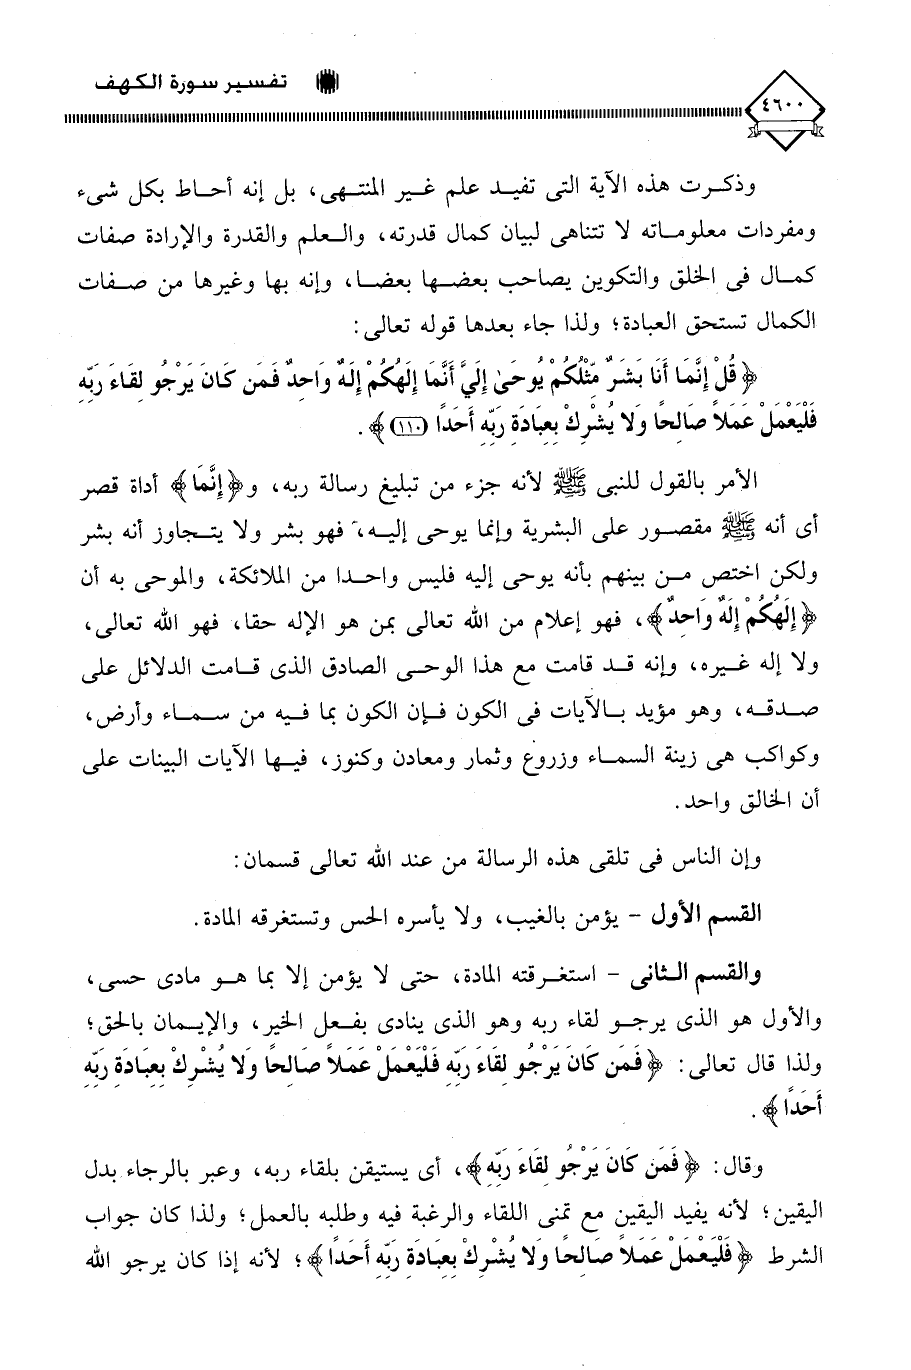 تفسير سورة الكهف
٤٦٠٠
وذكرت هذه الآية التى تفيد علم غير المنتهى، بل إنه أحاط بكل شىء
ومفردات معلوماته لا تتناهى لبيان كمال قدرته، والعلم والقدرة والإرادة صفات
كمال فى الخلق والتكوين يصاحب بعضها بعضا، وإنه بها وغيرها من صفات
الكمال تستحق العبادة؛ ولذا جاء بعدها قوله تعالى:
﴿قُلْ إِنَّمَا أَنَا بَشَرٌ مِّثْلُكُمْ يُوحَىٰ إِلَيَّ أَنَّمَا إِلَهُكُمْ إِلَهٌ وَاحِدٌ فَمَن كَانَ يَرْجُو لِقَاءَ رَبِّهِ
فَلْيَعْمَلْ عَمَلاً صَالِحًا وَلا يُشْرِكْ بِعِبَادَةِ رَبِّهِ أَحَدًا (١١٠)﴾ .
الأمر بالقول للنبى ﷺ لأنه جزء من تبليغ رسالة ربه، و﴿إِنَّمَا﴾ أداة قصر
أى أنه ﷺ مقصور على البشرية وإنما يوحى إليه، فهو بشر ولا يتجاوز أنه بشر
ولكن اختص من بينهم بأنه يوحى إليه فليس واحدا من الملائكة، والموحى به أن
﴿إِلَهُكُمْ إِلَهٌ وَاحِدٌ﴾، فهو إعلام من الله تعالى بمن هو الإله حقا، فهو الله تعالى،
ولا إله غيره، وإنه قد قامت مع هذا الوحى الصادق الذى قامت الدلائل على
صدقه، وهو مؤيد بالآيات فى الكون فإن الكون بما فيه من سماء وأرض،
وكواكب هى زينة السماء وزروع وثمار ومعادن وكنوز، فيها الآيات البينات على
أن الخالق واحد.
وإن الناس فى تلقى هذه الرسالة من عند الله تعالى قسمان:
القسم الأول - يؤمن بالغيب، ولا يأسره الحس وتستغرقه المادة.
والقسم الثانى - استغرقته المادة، حتى لا يؤمن إلا بما هو مادى حسى،
والأول هو الذى يرجو لقاء ربه وهو الذى ينادى بفعل الخير، والإيمان بالحق؛
ولذا قال تعالى: ﴿فَمَن كَانَ يَرْجُو لِقَاءَ رَبِّهِ فَلْيَعْمَلْ عَمَلاً صَالِحًا وَلا يُشْرِكْ بِعِبَادَةِ رَبِّهِ
أَحَدًا﴾ .
وقال: ﴿فَمَن كَانَ يَرْجُو لِقَاءَ رَبِّهِ﴾، أى يستيقن بلقاء ربه، وعبر بالرجاء بدل
اليقين؛ لأنه يفيد اليقين مع تمنى اللقاء والرغبة فيه وطلبه بالعمل؛ ولذا كان جواب
الشرط ﴿فَلْيَعْمَلْ عَمَلاً صَالِحًا وَلا يُشْرِكْ بِعِبَادَةِ رَبِّهِ أَحَدًا﴾؛ لأنه إذا كان يرجو الله